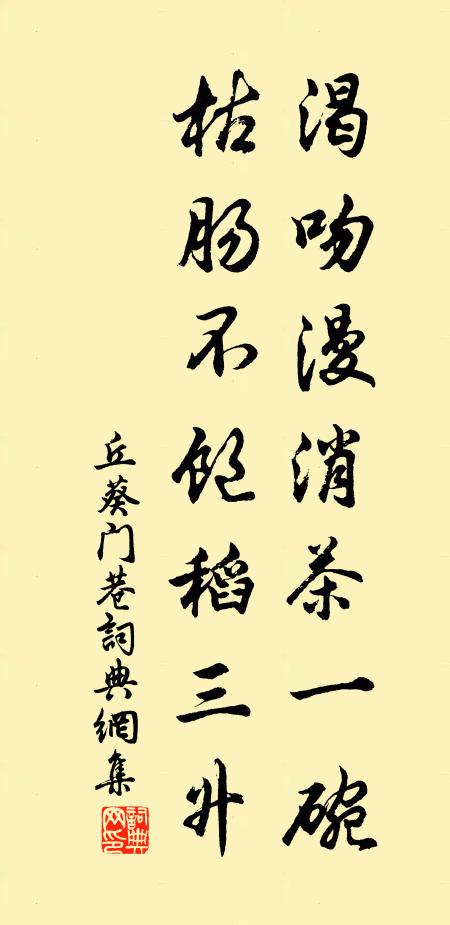 渴吻漫消茶一碗
枯肠不饱稻三升
丘葵门巷詞典網集
詞典網印